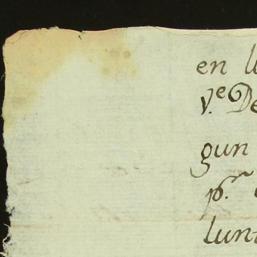 en
v.e De
gun
p.r
lun